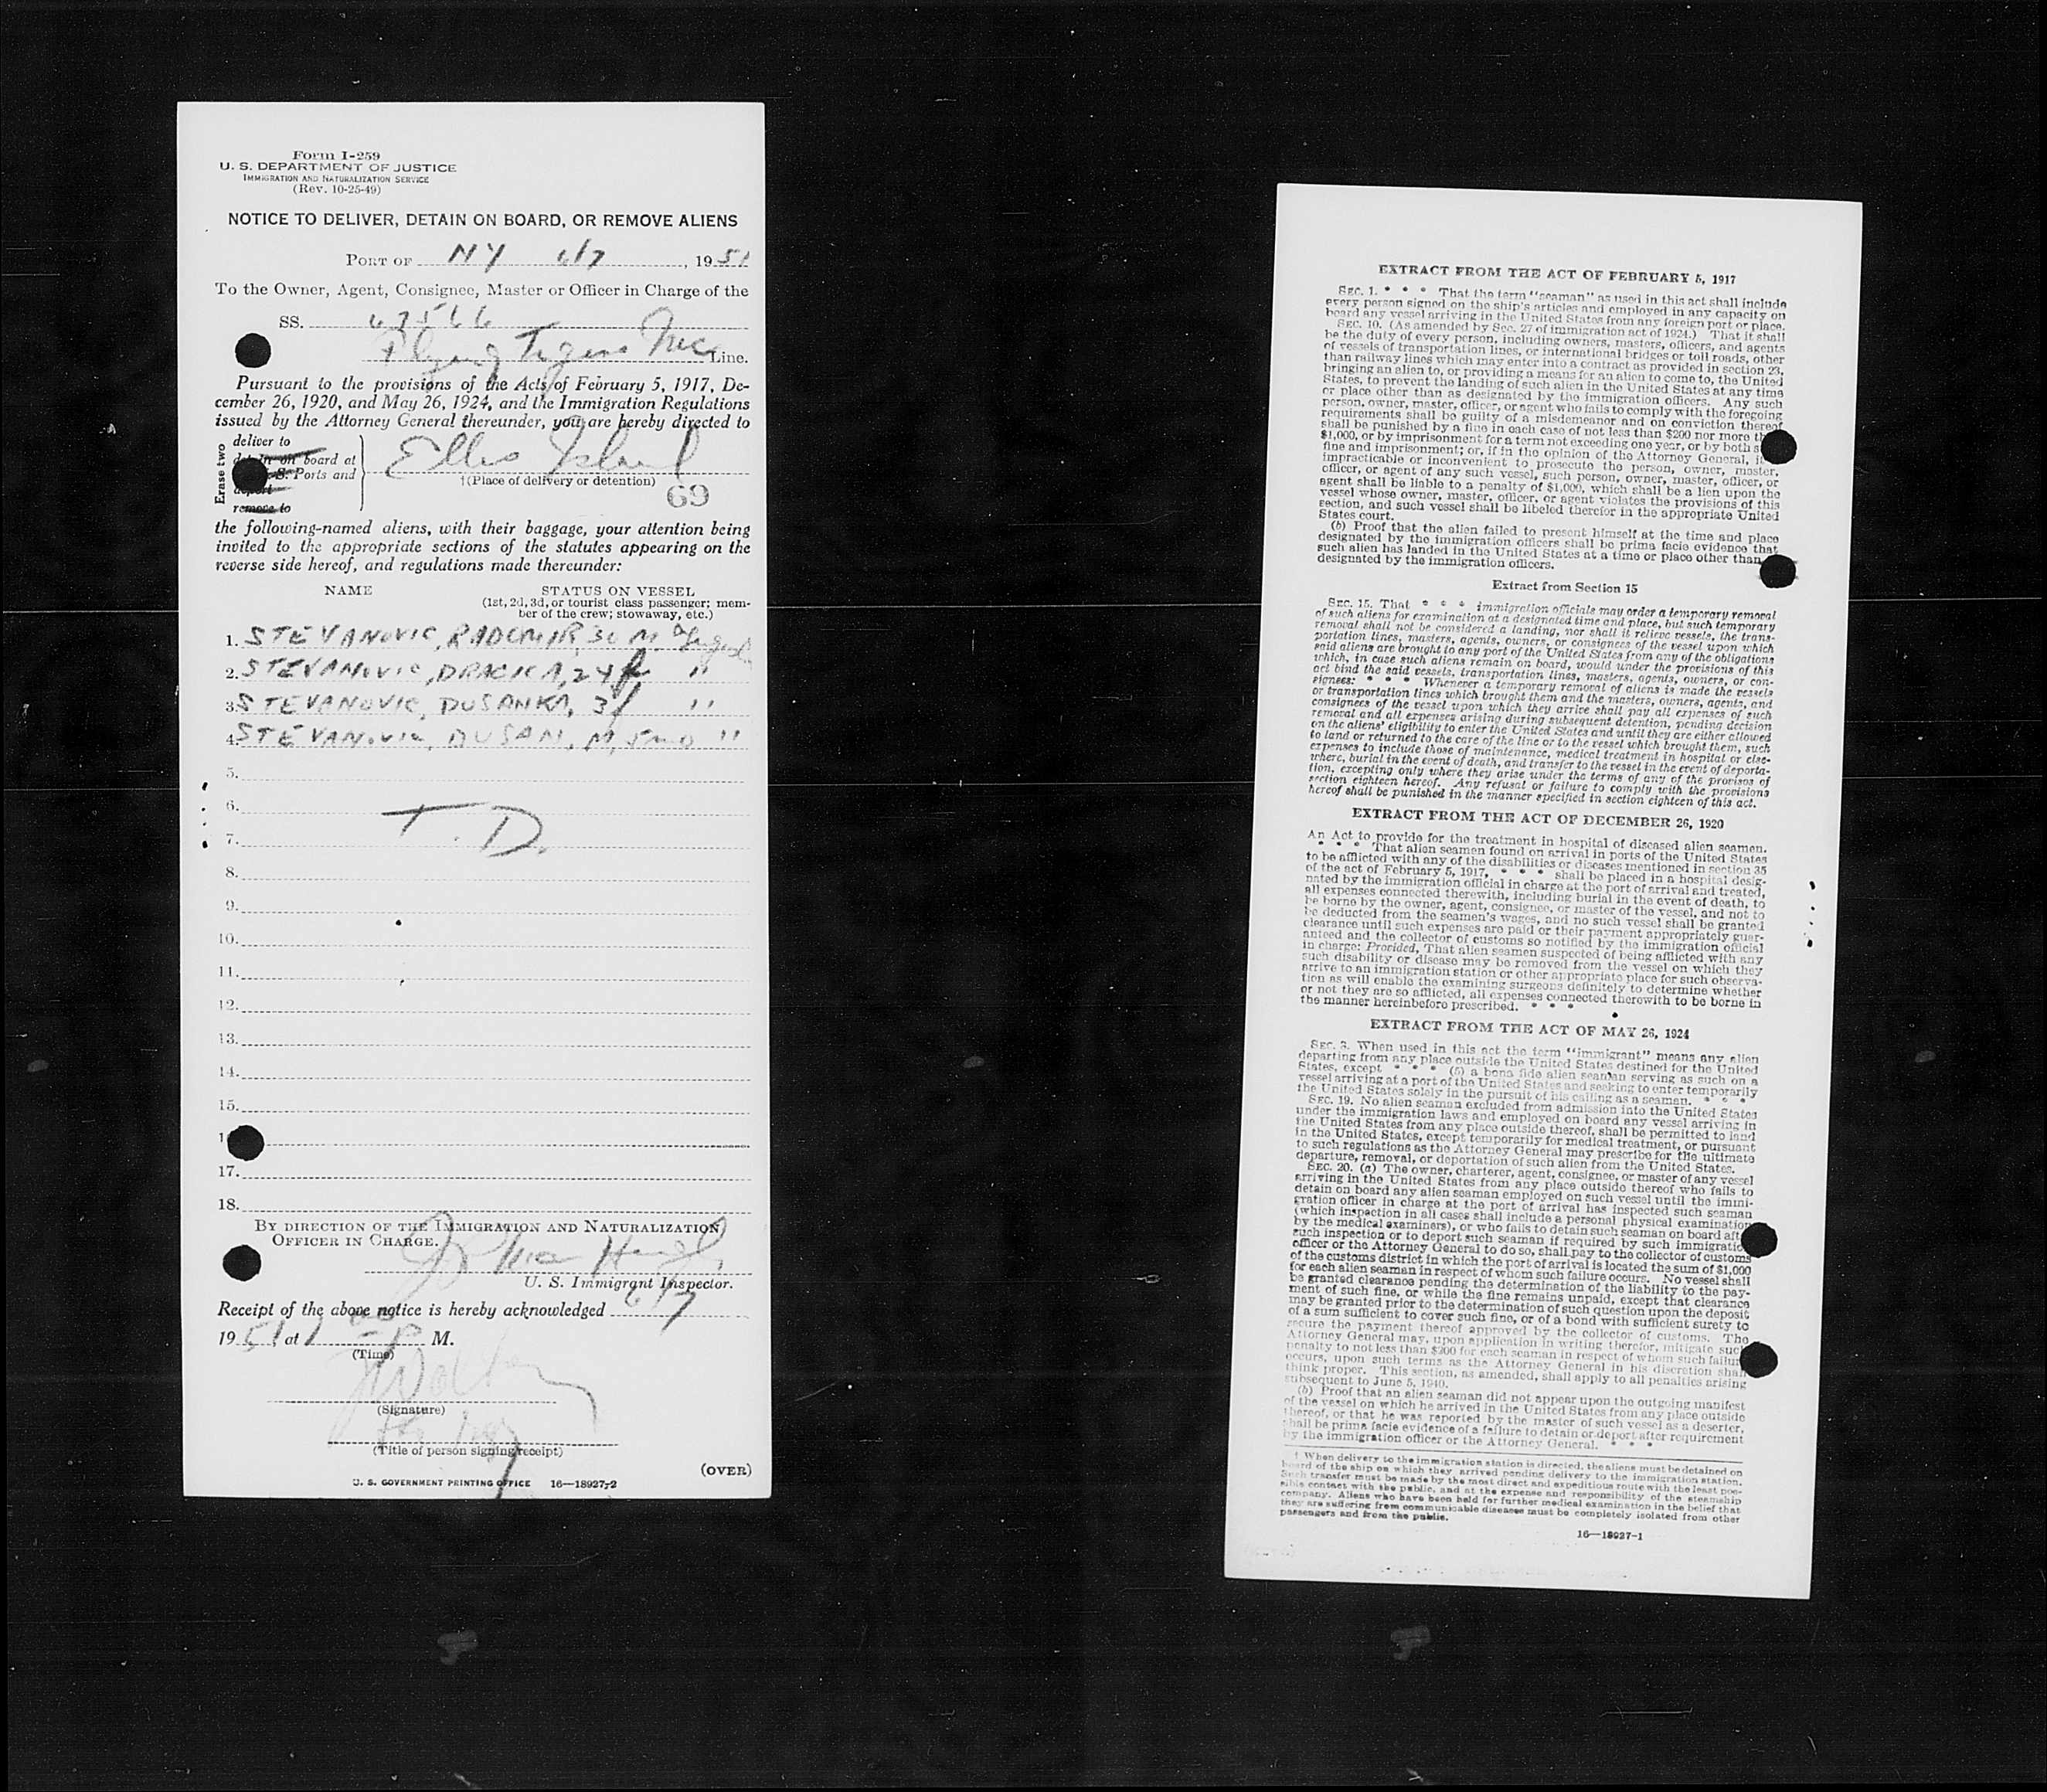 Form I-259
U. S. DEPARTMENT OF JUSTICE
IMMIGRATION AND NATURALIZATION SERVICE
(Rev. 10-25-49)
NOTICE TO DELIVER, DETAIN ON BOARD, OR REMOVE ALIENS
PORT OF NY 6/7, 1951
To the Owner, Agent, Consignee, Master or Officer in Charge of the
SS. 67566
Flying Tigers Line.
Pursuant to the provisions of the Acts of February 5, 1917, De-
cember 26, 1920, and May 26, 1924, and the Immigration Regulations
issued by the Attorney General thereunder, you are hereby directed to
Erase two
deliver to
detain on board at
S. Ports and
deport
remove to
Ellis Island
†(Place of delivery or detention)
69
the following-named aliens, with their baggage, your attention being
invited to the appropriate sections of the statutes appearing on the
reverse side hereof, and regulations made thereunder:
NAME STATUS ON VESSEL
(1st, 2d, 3d, or tourist class passenger; mem-
ber of the crew; stowaway, etc.)
1. STEVANOVIC, RADOMIR, 30 M
2. STEVANOVIC, DRAGICA, 24 f "
3. STEVANOVIC, DUSANKA, 3 f "
4. STEVANOVIC, DUSAN, M, 5 mo "
5.
6.
T. D.
7.
8.
9.
10.
11.
12.
13.
14.
15.
17.
18.
BY DIRECTION OF THE IMMIGRATION AND NATURALIZATION
OFFICER IN CHARGE.
U. S. Immigrant Inspector.
Receipt of the above notice is hereby acknowledged 6/7
1951 at P M.
(Time)
(Signature)
(Title of person signing receipt)
(OVER)
U. S. GOVERNMENT PRINTING OFFICE 16—18927-2
EXTRACT FROM THE ACT OF FEBRUARY 5, 1917
SEC. 1. * * * That the term "seaman" as used in this act shall include
every person signed on the ship's articles and employed in any capacity on
board any vessel arriving in the United States from any foreign port or place.
SEC. 10. (As amended by Sec. 27 of immigration act of 1924.) That it shall
be the duty of every person, including owners, masters, officers, and agents
of vessels of transportation lines, or international bridges or toll roads, other
than railway lines which may enter into a contract as provided in section 23,
bringing an alien to, or providing a means for an alien to come to, the United
States, to prevent the landing of such alien in the United States at any time
or place other than as designated by the immigration officers. Any such
person, owner, master, officer, or agent who fails to comply with the foregoing
requirements shall be guilty of a misdemeanor and on conviction thereof
shall be punished by a fine in each case of not less than $200 nor more
$1,000, or by imprisonment for a term not exceeding one year, or by both s
fine and imprisonment; or, if in the opinion of the Attorney General, i
impracticable or inconvenient to prosecute the person, owner, master,
officer, or agent of any such vessel, such person, owner, master, officer, or
agent shall be liable to a penalty of $1,000, which shall be a lien upon the
vessel whose owner, master, officer, or agent violates the provisions of this
section, and such vessel shall be libeled therefor in the appropriate United
States court.
(b) Proof that the alien failed to present himself at the time and place
designated by the immigration officers shall be prima facie evidence that
such alien has landed in the United States at a time or place other than
designated by the immigration officers.
Extract from Section 15
SEC. 15. That * * * immigration officials may order a temporary removal
of such aliens for examination at a designated time and place, but such temporary
removal shall not be considered a landing, nor shall it relieve vessels, the trans-
portation lines, masters, agents, owners, or consignees of the vessel upon which
said aliens are brought to any port of the United States from any of the obligations
which, in case such aliens remain on board, would under the provisions of this
act bind the said vessels, transportation lines, masters, agents, owners, or con-
signees: * * * Whenever a temporary removal of aliens is made the vessels
or transportation lines which brought them and the masters, owners, agents, and
consignees of the vessel upon which they arrive shall pay all expenses of such
removal and all expenses arising during subsequent detention, pending decision
on the aliens' eligibility to enter the United States and until they are either allowed
to land or returned to the care of the line or to the vessel which brought them, such
expenses to include those of maintenance, medical treatment in hospital or else-
where, burial in the event of death, and transfer to the vessel in the event of deporta-
tion, excepting only where they arise under the terms of any of the provisos of
section eighteen hereof. Any refusal or failure to comply with the provisions
hereof shall be punished in the manner specified in section eighteen of this act.
EXTRACT FROM THE ACT OF DECEMBER 26, 1920
An Act to provide for the treatment in hospital of diseased alien seamen.
* * * That alien seamen found on arrival in ports of the United States
to be afflicted with any of the disabilities or diseases mentioned in section 35
of the act of February 5, 1917, * * * shall be placed in a hospital desig-
nated by the immigration official in charge at the port of arrival and treated,
all expenses connected therewith, including burial in the event of death, to
be borne by the owner, agent, consignee, or master of the vessel, and not to
be deducted from the seamen's wages, and no such vessel shall be granted
clearance until such expenses are paid or their payment appropriately guar-
anteed and the collector of customs so notified by the immigration official
in charge: Provided, That alien seamen suspected of being afflicted with any
such disability or disease may be removed from the vessel on which they
arrive to an immigration station or other appropriate place for such observa-
tion as will enable the examining surgeons definitely to determine whether
or not they are so afflicted, all expenses connected therewith to be borne in
the manner hereinbefore prescribed. * * *
EXTRACT FROM THE ACT OF MAY 26, 1924
SEC. 3. When used in this act the term "immigrant" means any alien
departing from any place outside the United States destined for the United
States, except * * * (5) a bona fide alien seaman serving as such on a
vessel arriving at a port of the United States and seeking to enter temporarily
the United States solely in the pursuit of his calling as a seaman. * * *
SEC. 19. No alien seaman excluded from admission into the United States
under the immigration laws and employed on board any vessel arriving in
the United States from any place outside thereof, shall be permitted to land
in the United States, except temporarily for medical treatment, or pursuant
to such regulations as the Attorney General may prescribe for the ultimate
departure, removal, or deportation of such alien from the United States.
SEC. 20. (a) The owner, charterer, agent, consignee, or master of any vessel
arriving in the United States from any place outside thereof who fails to
detain on board any alien seaman employed on such vessel until the immi-
gration officer in charge at the port of arrival has inspected such seaman
(which inspection in all cases shall include a personal physical examination
by the medical examiners), or who fails to detain such seaman on board aft
such inspection or to deport such seaman if required by such immigratio
officer or the Attorney General to do so, shall pay to the collector of customs
of the customs district in which the port of arrival is located the sum of $1,000
for each alien seaman in respect of whom such failure occurs. No vessel shall
be granted clearance pending the determination of the liability to the pay-
ment of such fine, or while the fine remains unpaid, except that clearance
may be granted prior to the determination of such question upon the deposit
of a sum sufficient to cover such fine, or of a bond with sufficient surety to
secure the payment thereof approved by the collector of customs. The
Attorney General may, upon application in writing therefor, mitigate such
penalty to not less than $200 for each seaman in respect of whom such failur
occurs, upon such terms as the Attorney General in his discretion shall
think proper. This section, as amended, shall apply to all penalties arising
subsequent to June 5, 1940.
(b) Proof that an alien seaman did not appear upon the outgoing manifest
of the vessel on which he arrived in the United States from any place outside
thereof, or that he was reported by the master of such vessel as a deserter,
shall be prima facie evidence of a failure to detain or deport after requirement
by the immigration officer or the Attorney General. * * *
† When delivery to the immigration station is directed, the aliens must be detained on
board of the ship on which they arrived pending delivery to the immigration station.
Such transfer must be made by the most direct and expeditious route with the least pos-
sible contact with the public, and at the expense and responsibility of the steamship
company. Aliens who have been held for further medical examination in the belief that
they are suffering from communicable diseases must be completely isolated from other
passengers and from the public.
16—18927-1